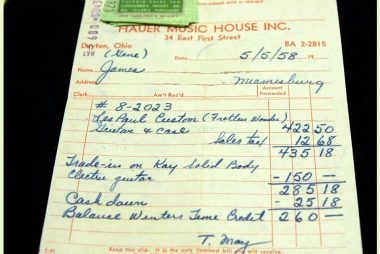 HAUER MUSIC HOUSE INC.
34 East First Street
Dayton, Ohio BA 2-2815
(Gene) 5/5/58 19
Name James
Address Miamisburg
Clerk Am't Rec'd Account Forwarded
# 8-2023
Les Paul Custom (Fretless Wonder)
Guitar & case 422 50
Sales tax 12 68
435 18
Trade-in on Kay Solid Body
Electric guitar -150 —
285 18
Cash down - 25 18
Balance Winters Time Credit 260 —
T. May
Keep this slip.